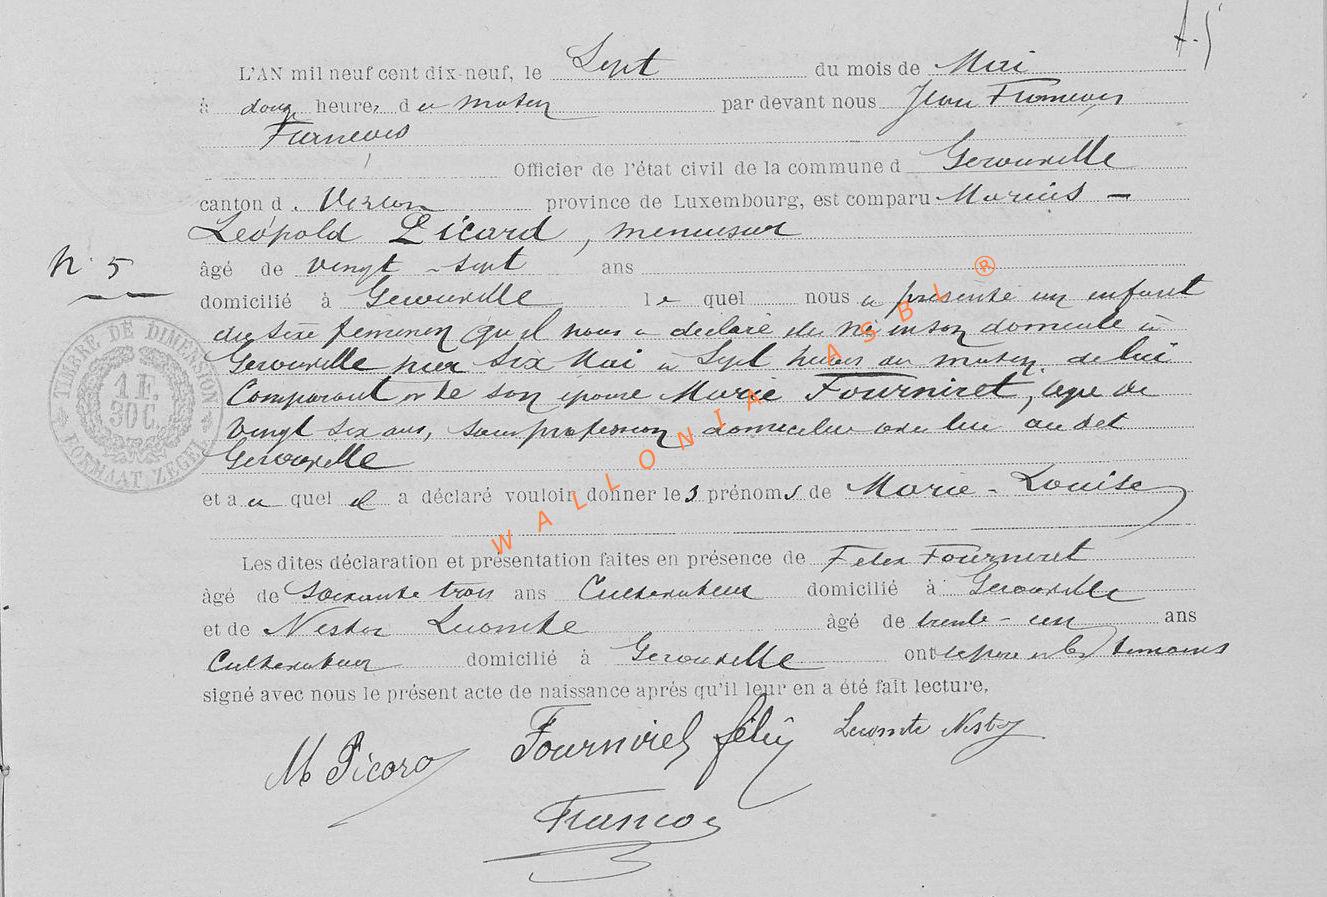 A. 5
L'AN mil neuf cent dix-neuf, le Sept du mois de Mai
à douze heures du matin par devant nous Jean François
François
Officier de l'état civil de la commune d Gérouville
canton d. Virton province de Luxembourg, est comparu Marius -
Léopold Picard, menuisier
N° 5
âgé de vingt-sept ans
domicilié à Gérouville le quel nous a présenté un enfant
du sexe féminin qu'il nous a déclaré être né en son domicile à
Gérouville hier Six Mai à Sept heures du matin, de lui
Comparant et de son épouse Marie Fourniret, agée de
vingt six ans, sans profession, domiciliée avec lui au dit
Gérouville
et a u quel il a déclaré vouloir donner les prénoms de Marie-Louise
Les dites déclaration et présentation faites en présence de Felix Fourniret
âgé de Soixante trois ans Cultivateur domicilié à Gérouville
et de Nestor Lecomte âgé de trente-un ans
Cultivateur domicilié à Gérouville ont le père et les témoins
signé avec nous le présent acte de naissance après qu'il leur en a été fait lecture,
M Picard Fourniret félix Lecomte Nestor
François
TIMBRE DE DIMENSION
1 F.
30 C.
FORMAAT ZEGEL
WALLONIA ASBL ®